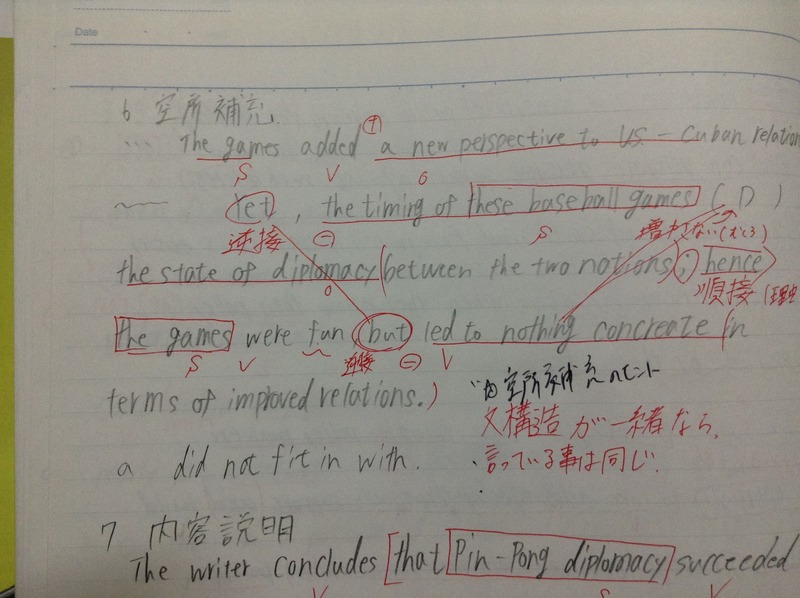 Date
6 空所補充
… The games added a new perspective to U.S. - Cuban relation
⊕
S V O
Yet, the timing of these baseball games ( D )
逆接 ⊖ S
the state of diplomacy (between the two nations; hence
O 順接
the games were fun, but led to nothing concreate in
S V 逆接 ⊖ V
terms of improved relations.)
空所補充のヒント
文構造が一緒なら、
a did not fit in with. ・言っている事は同じ.
7 内容説明
The writer concludes [that Pin-Pong diplomacy succeeded
V S V